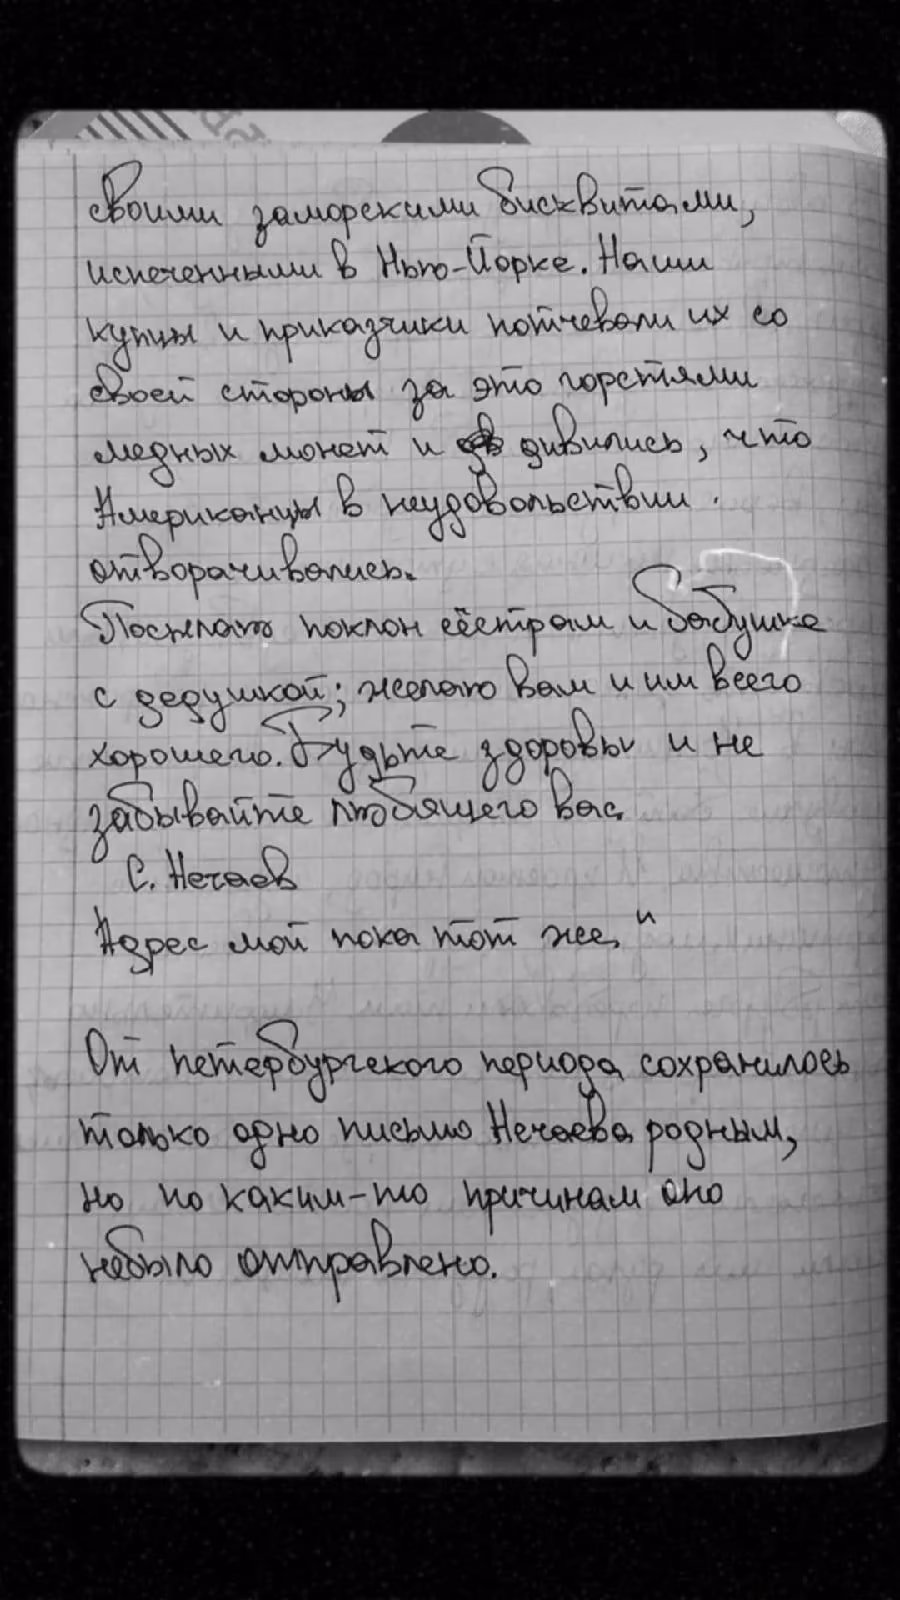 своими заморскими бисквитами,
испеченными в Нью-Йорке. Наши
купцы и приказчики потчевали их со
своей стороны за это горстями
медных монет и дивились, что
Американцы в неудовольствии
отворачивались.
Посылаю поклон сёстрам и бабушке
с дедушкой; желаю вам и им всего
хорошего. Будьте здоровы и не
забывайте любящего вас
С. Нечаев
Адрес мой пока тот же."
От петербургского периода сохранилось
только одно письмо Нечаева родным,
но по каким-то причинам оно
небыло отправлено.